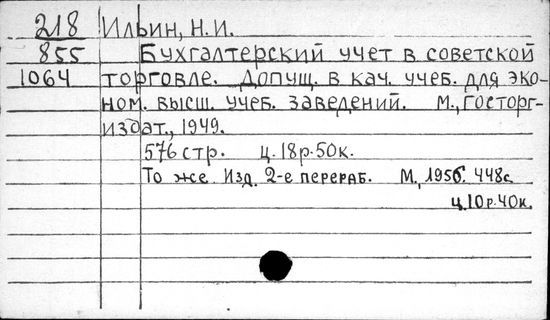 218 Ильин, Н. И.
855 Бухгалтерский учет в советской
1064 торговле. Допущ. в кач. учеб. для эко-
ном. высш. учеб. заведений. М., Госторг-
издат., 1949.
576 стр. ц. 18 р. 50 к.
То же. Изд. 2-е перераб. М., 1956. 448 с.
ц. 10 р. 40 к.